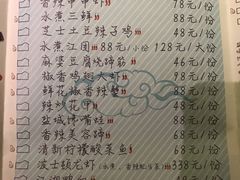 香辣牛牛虾 78元/份
水煮三鲜 88元/份
芝士土豆辣子鸡 48元/份
水煮江团 88元/小份 128元/大份
麻婆豆腐烧蹄筋 46元/份
椒香鸡翅大虾 48元/份
鲜花椒香辣蟹 88元/份
辣炒花甲 48元/份
盐城博嘴蛙 68元/份
香辣美容蹄 68元/份
清新柠檬酸菜鱼 68元/份
波士顿龙虾(水煮、香辣 338元/份
68元/份